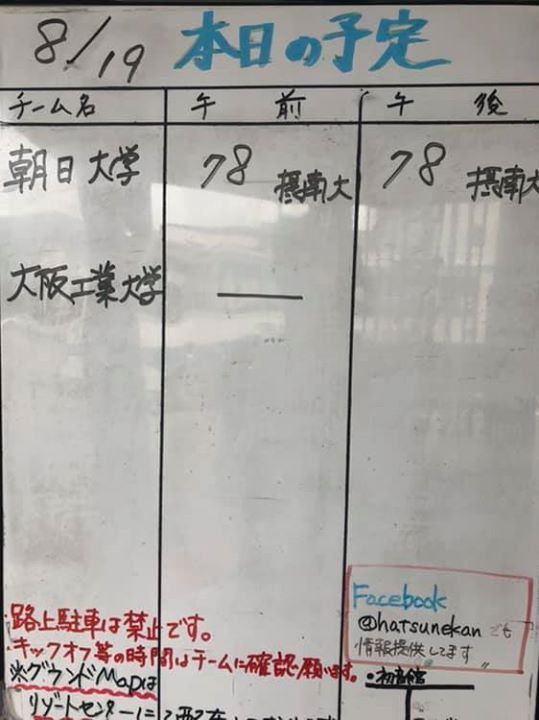 8/19 本日の予定
チーム名 午前 午後
朝日大学 78 摂南大 78 摂南大
大阪工業大学 ―
Facebook
@hatsunekan でも
情報提供してます
・路上駐車は禁止です。
・キックオフ等の時間はチームに確認願います。
※グウンドMapは
・初音館
リゾートセンターに